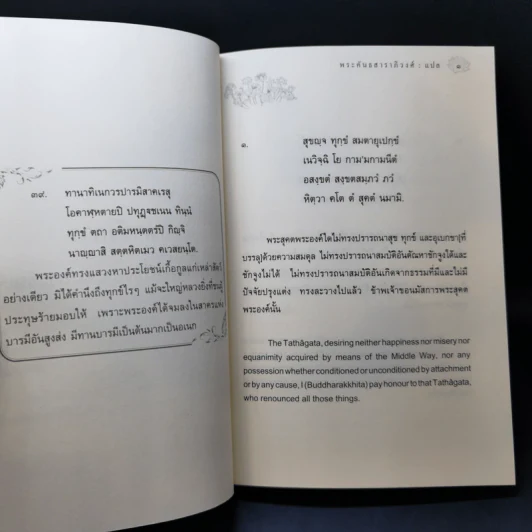 ๓๙. ทานาทิเนกวรปารมิสาคเรสุ
โอคาฬฺหตายปิ ปทุฏฺฐชเนน ทินฺนํ
ทุกฺขํ ตถา อติมหนฺตตรํปิ กิญฺจิ
นาญฺญาสิ สตฺตหิตเมว คเวสยนฺโต.
พระองค์ทรงแสวงหาประโยชน์เกื้อกูลแก่เหล่าสัตว์
อย่างเดียว มิได้คำนึงถึงทุกข์ไรๆ แม้จะใหญ่หลวงยิ่งที่ชนผู้
ประทุษร้ายมอบให้ เพราะพระองค์ได้จมลงในสาครแห่ง
บารมีอันสูงส่ง มีทานบารมีเป็นต้นมากเป็นอเนก
พระคันธสาราภิวงศ์ : แปล
๑. สุขญฺจ ทุกฺขํ สมตายุเปกฺขํ
เนวิจฺฉิ โย กามมกามนีตํ
อสงฺขตํ สงฺขตสมฺภวํ ภวํ
หิตฺวา คโต ตํ สุคตํ นมามิ.
พระสุคตพระองค์ใดไม่ทรงปรารถนาสุข ทุกข์ และอุเบกขา(ที่
บรรลุ)ด้วยความสมดุล ไม่ทรงปรารถนาสมบัติอันตัณหาชักจูงได้และ
ชักจูงไม่ได้ ไม่ทรงปรารถนาสมบัติอันเกิดจากธรรมที่มีและไม่มี
ปัจจัยปรุงแต่ง ทรงละวางไปแล้ว ข้าพเจ้าขอนมัสการพระสุคต
พระองค์นั้น
The Tathāgata, desiring neither happiness nor misery nor
equanimity acquired by means of the Middle Way, nor any
possession whether conditioned or unconditioned by attachment
or by any cause, I (Buddharakkhita) pay honour to that Tathāgata,
who renounced all those things.